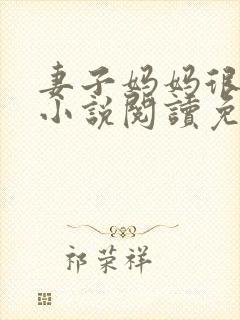 妻子妈妈很
小说閱讀免
祁荣祥